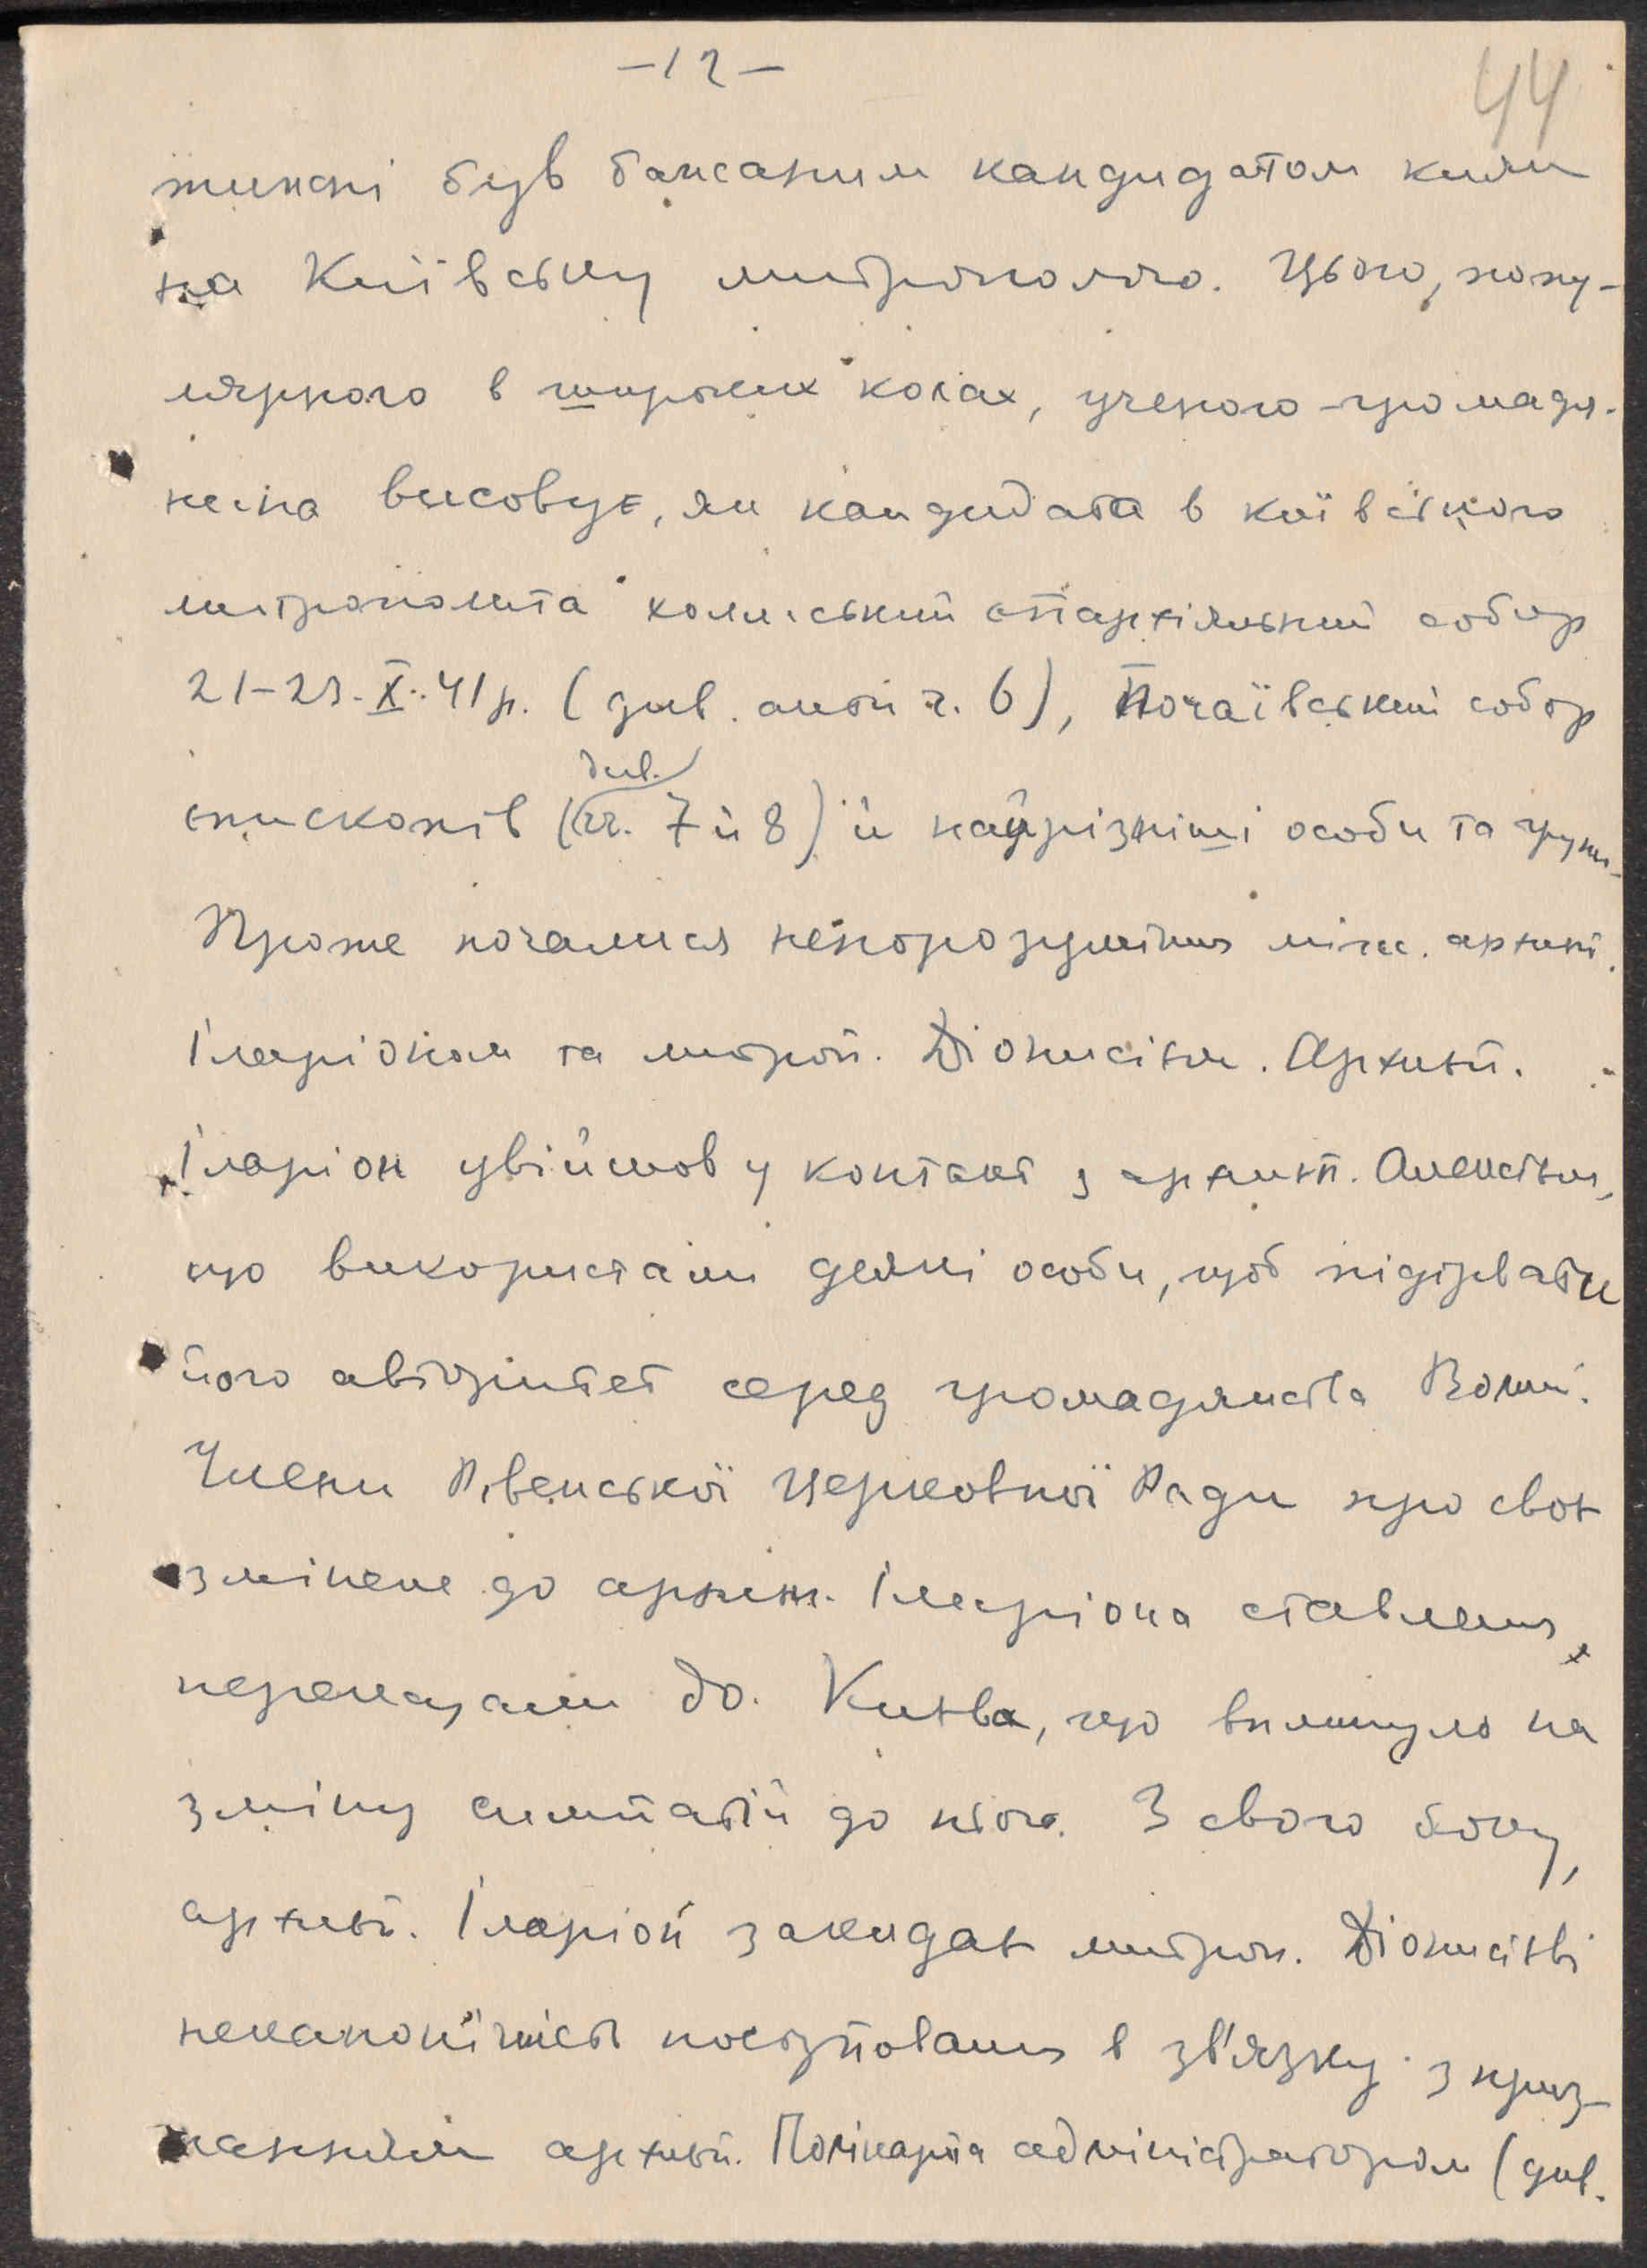 -12-
44
був бажаним кандидатом киян
на Київську митрополію. Цього, попу-
лярного в широких колах, ученого-громадя-
нина висовує, як кандидата в київського
митрополита холмський єпархіяльний собор
21-23.X.41р. (див. акт ч. 6), Почаївський собор
див.
єпископів (чч. 7 й 8) й найрізніші особи та групи.
Проте почалися непорозуміння між архиєп.
Іларіоном та митроп. Діонисієм. Архиєп.
Іларіон увійшов у контакт з архиєп. Алексієм,
що використали деякі особи, щоб підірвати
його авторитет серед громадянства Волині.
Члени Рівенської Церковної Ради про своє
змінене до архиєп. Іларіона ставлення,
переказали до Києва, що вплинуло на
зміну симпатій до нього. З свого боку,
архиєп. Іларіон закидає митроп. Діонисієві
неканонічність поступовання в зв'язку з приз-
наченням архиєп. Полікарпа адміністратором (див.